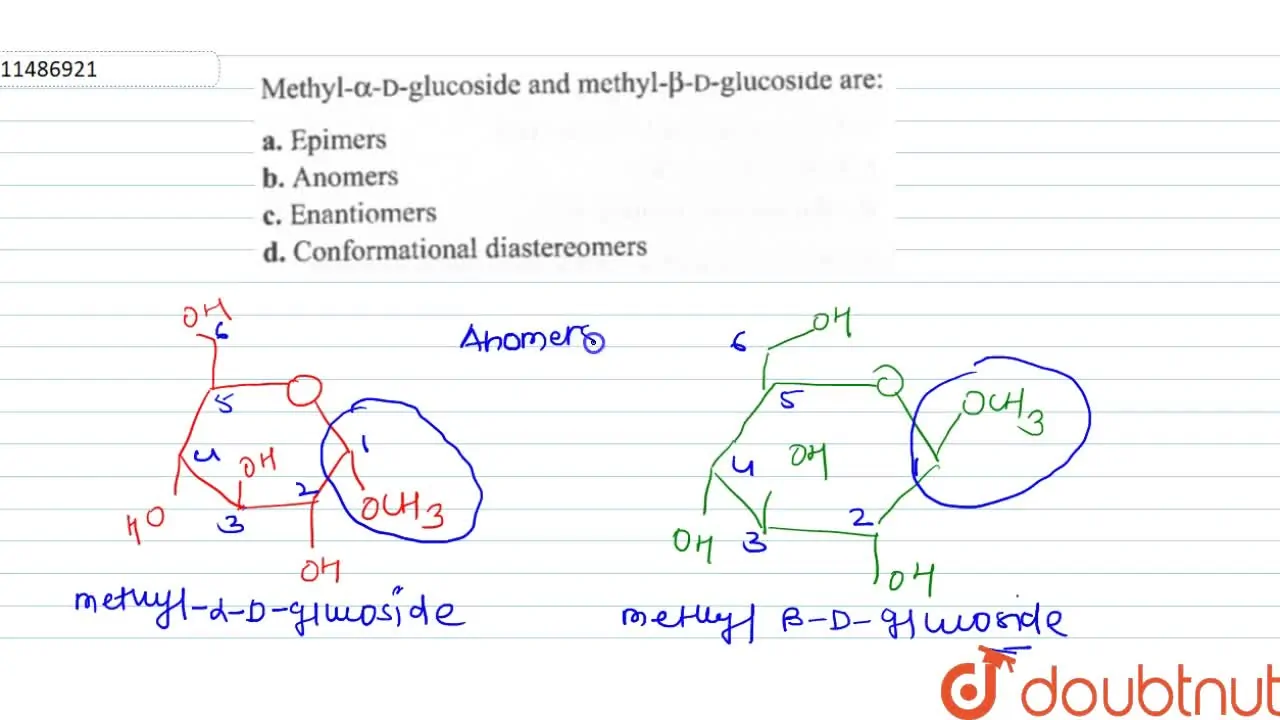 11486921
Methyl-α-D-glucoside and methyl-β-D-glucoside are:
a. Epimers
b. Anomers
c. Enantiomers
d. Conformational diastereomers
OH
6
Anomers
6
OH
5
O
1
4
OH
2
3
OCH3
HO
OH
5
O
OCH3
4
OH
1
2
3
OH
OH
methyl-α-D-glucoside
methyl β-D-glucoside
doubtnut